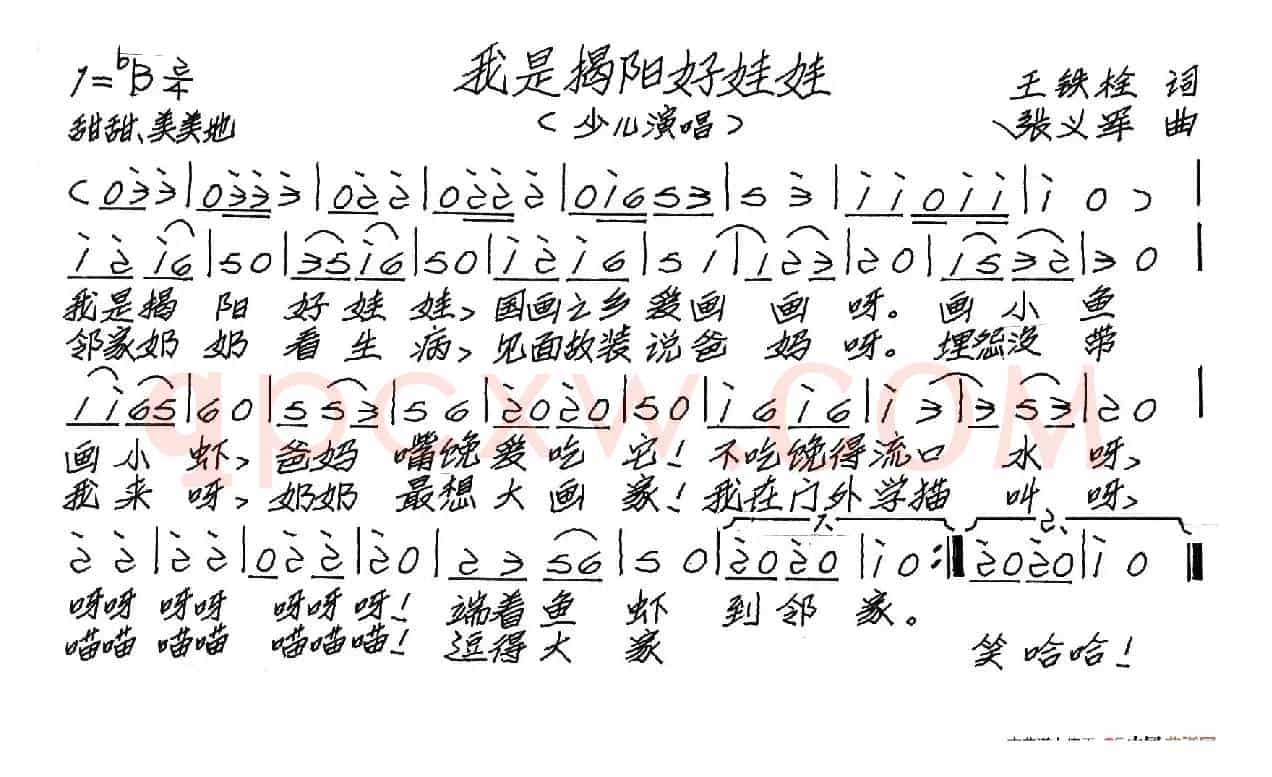 我是揭阳好娃娃
1=♭B 2/4
王铁栓 词
甜甜、美美地
(少儿演唱)
张义军 曲
(0 3 3 | 0 3 3 3 | 0 2 2 | 0 2 2 2 | 0 1 6 5 3 | 5 3 | 1 1 0 1 1 | 1 0 )
1 2 1 6 | 5 0 | 3 5 1 6 | 5 0 | 1 2 1 6 | 5 1 | 1 2 3 | 2 0 | 1 5 3 2 | 3 0
我是揭 阳 好 娃 娃, 国画之乡 爱画 画 呀。 画 小 鱼
邻家奶 奶 看 生 病, 见面故装 说爸 妈 呀。 埋怨没 带
1 1 6 5 | 6 0 | 5 5 3 | 5 6 | 2 0 2 0 | 5 0 | 1 6 1 6 | 1 3 | 3 5 3 | 2 0
画 小 虾, 爸妈 嘴馋 爱 吃 它! 不吃馋得流口 水 呀,
我 来 呀, 奶奶 最想 大 画 家! 我在门外学描 叫 呀,
1. 2.
2 2 | 2 2 | 0 2 2 | 2 0 | 2 3 5 6 | 5 0 | 2 0 2 0 | 1 0 :| 2 0 2 0 | 1 0
呀呀 呀呀 呀呀 呀! 端着 鱼 虾 到 邻 家。
喵喵 喵喵 喵喵喵! 逗得 大 家 笑 哈 哈!
qpcxw.COM